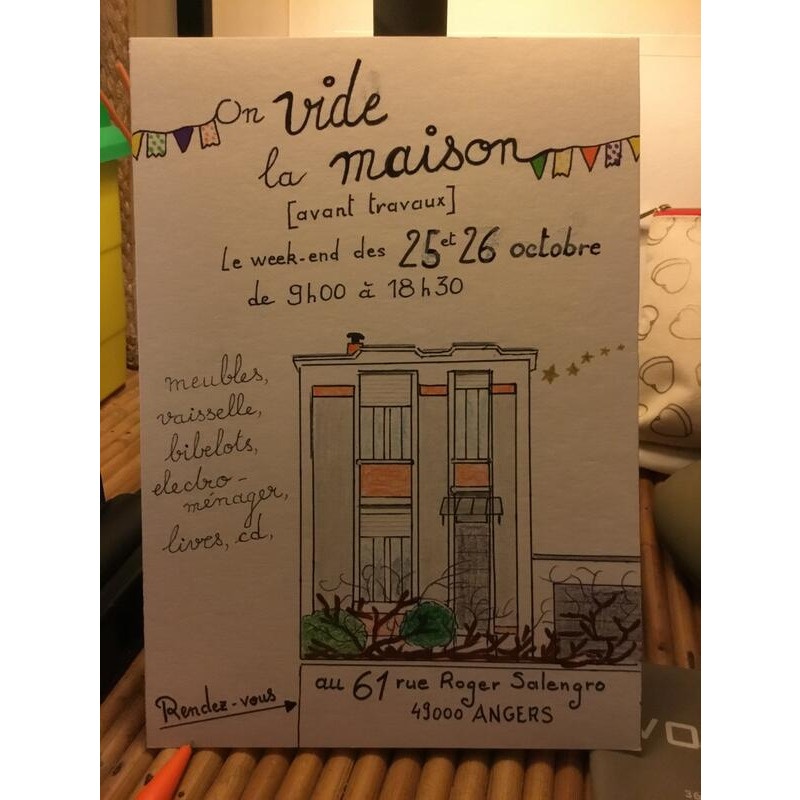 On vide
la maison
[avant travaux]
Le week-end des 25 et 26 octobre
de 9h00 à 18h30
meubles,
vaisselle,
bibelots,
electro-
ménager,
livres, cd,
Rendez-vous
au 61 rue Roger Salengro
49000 ANGERS